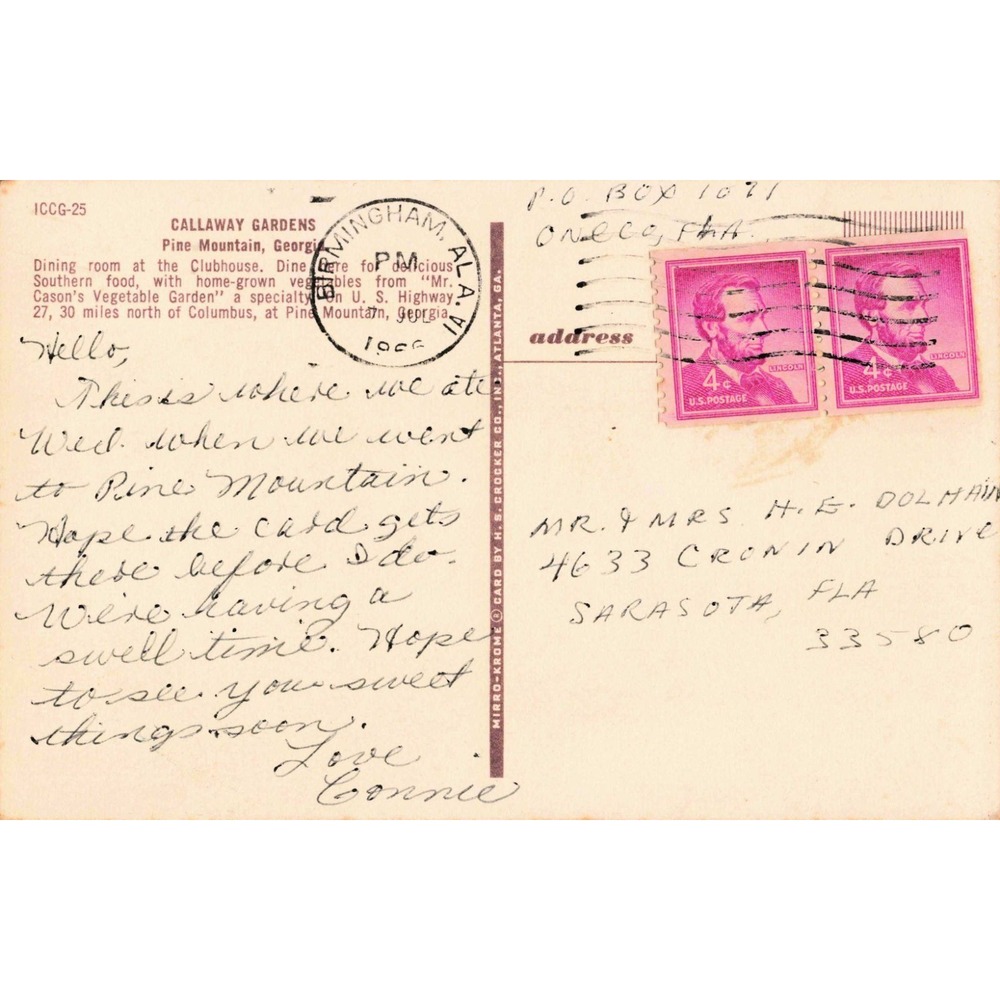 ICCG-25
CALLAWAY GARDENS
Pine Mountain, Georgia
Dining room at the Clubhouse. Dine here for delicious
Southern food, with home-grown vegetables from "Mr.
Cason's Vegetable Garden" a specialty. On U. S. Highway
27, 30 miles north of Columbus, at Pine Mountain, Georgia.
BIRMINGHAM, ALA. 1A
PM
7 JUL
1966
Hello,
This is where we ate
Wed. when we went
to Pine Mountain.
Hope the card gets
there before I do.
We're having a
swell time. Hope
to see you sweet
things soon.
Love
Connie
MIRRO-KROME ® CARD BY H. S. CROCKER CO., INC., ATLANTA, GA.
P.O. BOX 1071
ONECO, FLA.
address
4¢
LINCOLN
U.S. POSTAGE
4¢
LINCOLN
U.S. POSTAGE
MR. & MRS H. E. DOLMAN
4633 CRONIN DRIVE
SARASOTA, FLA
33580